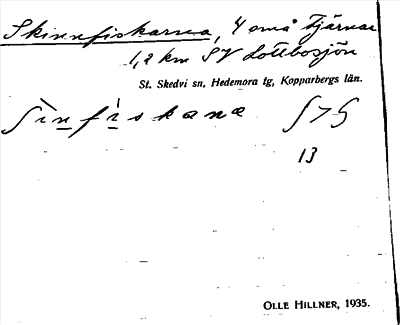 Skinnfiskarna, 4 små tjärnar
1,2 km SV Lottbosjön
St. Skedvi sn, Hedemora tg, Kopparbergs län.
Sìnfìskana
13
OLLE HILLNER, 1935.